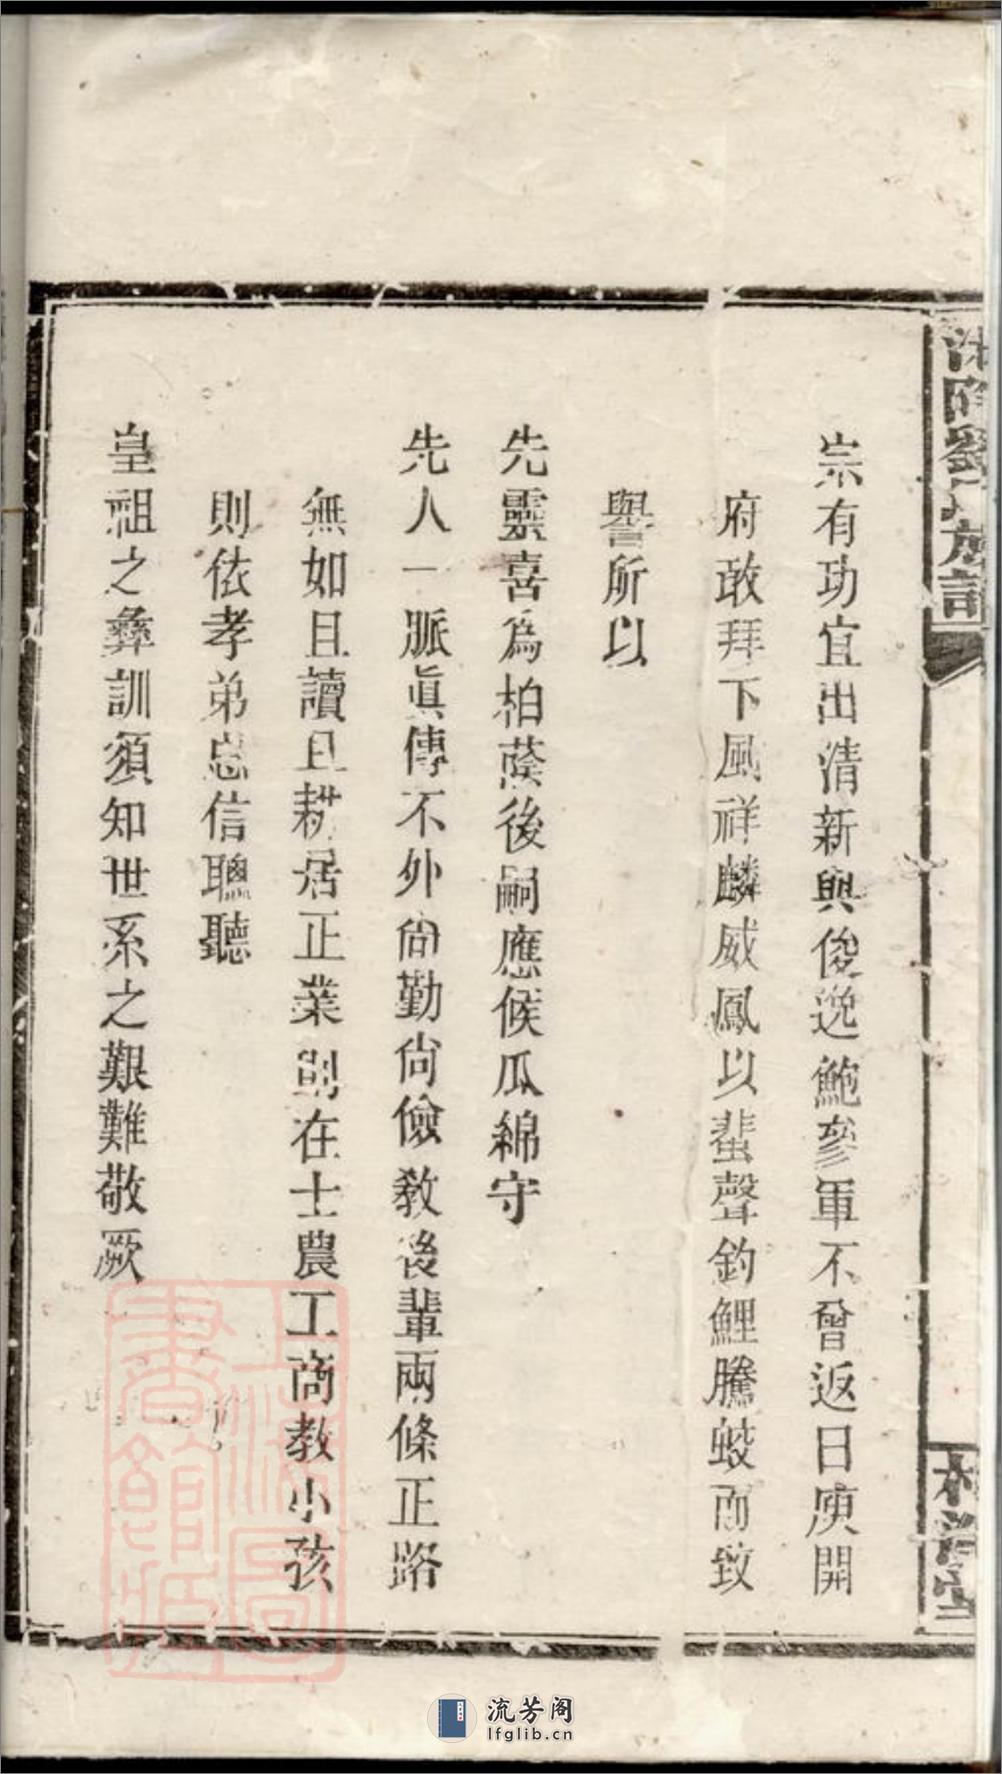 劉氏族譜
宗有功宜出清新與俊逸鮑參軍不曾返日庾開
府敢拜下風祥麟威鳳以蜚聲釣鯉騰蛟而致
譽所以
先靈喜爲柏蔭後嗣應候瓜綿守
先人一脈眞傳不外尙勤尙儉敎後輩兩條正路
無如且讀且耕居正業則在士農工商教小孩
則依孝弟忠信聰聽
皇祖之彝訓須知世系之艱難敬厥
上海圖書館藏
流芳阁
lfglib.cn